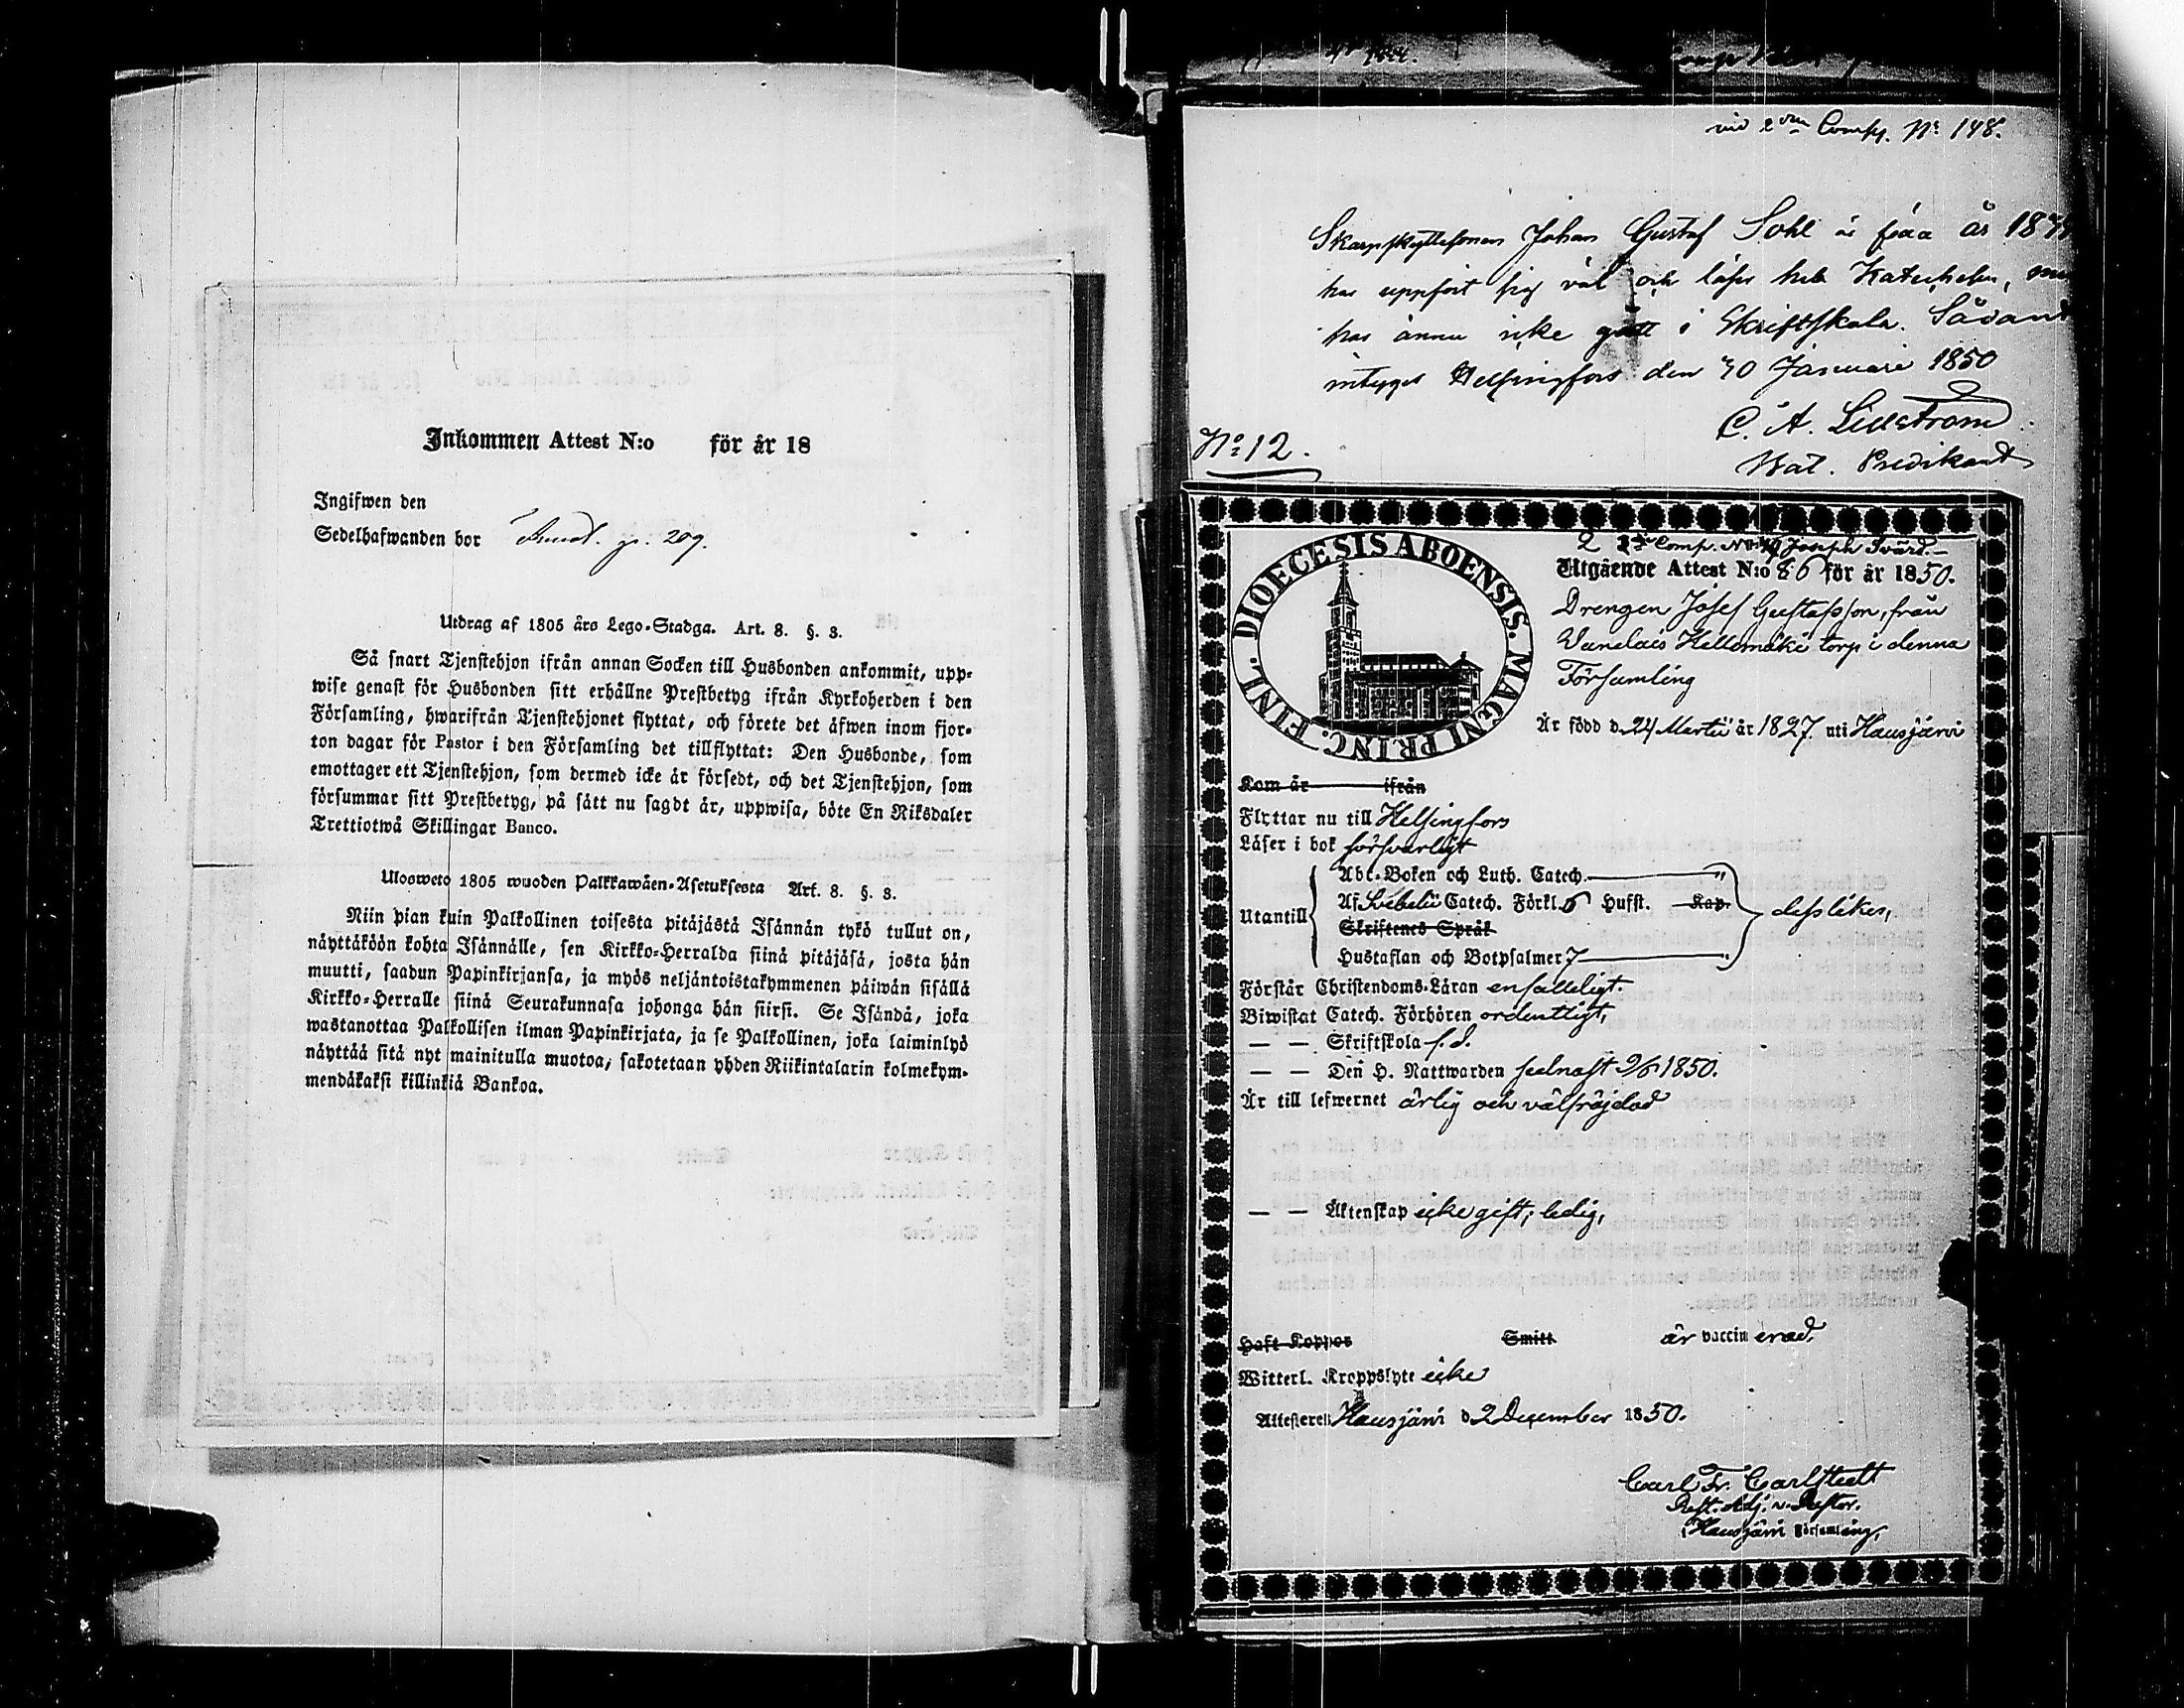 Inkommen Attest N:o för år 18
Ingifwen den
Sedelhafwanden bor p. 209.
Utdrag af 1805 års Lego-Stadga. Art. 8. §. 3.
Så snart Tjenstehjon ifrån annan Socken till Husbonden ankommit, upp-
wise genast för Husbonden sitt erhållne Prestbetyg ifrån Kyrkoherden i den
Församling, hwarifrån Tjenstehjonet flyttat, och förete det äfwen inom fjor-
ton dagar för Pastor i den Församling det tillflyttat: Den Husbonde, som
emottager ett Tjenstehjon, som dermed icke är försedt, och det Tjenstehjon, som
försummar sitt Prestbetyg, på sätt nu sagdt är, uppwisa, böte En Riksdaler
Trettiotwå Skillingar Banco.
Ulosweto 1805 wuoden Palkkawäen-Asetuksesta Art. 8. §. 3.
Niin pian kuin Palkollinen toisesta pitäjästä Isännän tykö tullut on,
näyttäköön kohta Isännälle, sen Kirkko-Herralda siinä pitäjäsä, josta hän
muutti, saadun Papinkirjansa, ja myös neljäntoistakymmenen päiwän sisällä
Kirkko-Herralle siinä Seurakunnasa johonga hän siirsi. Se Isändä, joka
wastanottaa Palkollisen ilman Papinkirjata, ja se Palkollinen, joka laiminlyö
näyttää sitä nyt mainitulla muotoa, sakotetaan yhden Riikintalarin kolmekym-
mendäkaksi killinkiä Bankoa.
vid Comp. No 148.
Skarpskyttesonen Johan Gustaf Sohl är född år
har uppfört sig väl och läser hela Katechesen,
har ännu icke gått i Skriftskola. Sådant
intygas Helsingfors den Januari 1850
C. A. Lidström
Bat. Predikant
No 12.
DIOECESIS ABOENSIS. MAGNI PRINC. FINL.
2 Comp. No Joseph Svärd.
Utgående Attest N:o 86 för år 1850.
Drengen Josef Gustafsson, från
Hellemäki torp i denna
Församling
Är född d. 24 Martii år 1827 uti Hausjärvi
Kom år ifrån
Flyttar nu till Helsingfors
Läser i bok försvarligt
Abc-Boken och Luth. Catech. "
Utantill Af Svebelii Catech. Förkl. 5 Hufst. Kap. dess likes,
Skriftenes Språk
Hustaflan och Botpsalmer 7
Förstår Christendoms-Läran enfalleligt.
Biwistat Catech. Förhören ordentligt,
— — Skriftskola s. d.
— — Den H. Nattwarden sednast 9/6 1850.
Är till lefwernet ärlig och välfräjdad
— — Äktenskap icke gift; ledig,
Haft Koppor Smitt är vaccinerad.
Witterl. Kroppslyte icke
Attesteren Hausjärvi d 2 December 1850.
Carl Fr. Carlstedt
Past. Adj. v. Pastor.
i Hausjärvi Församling,